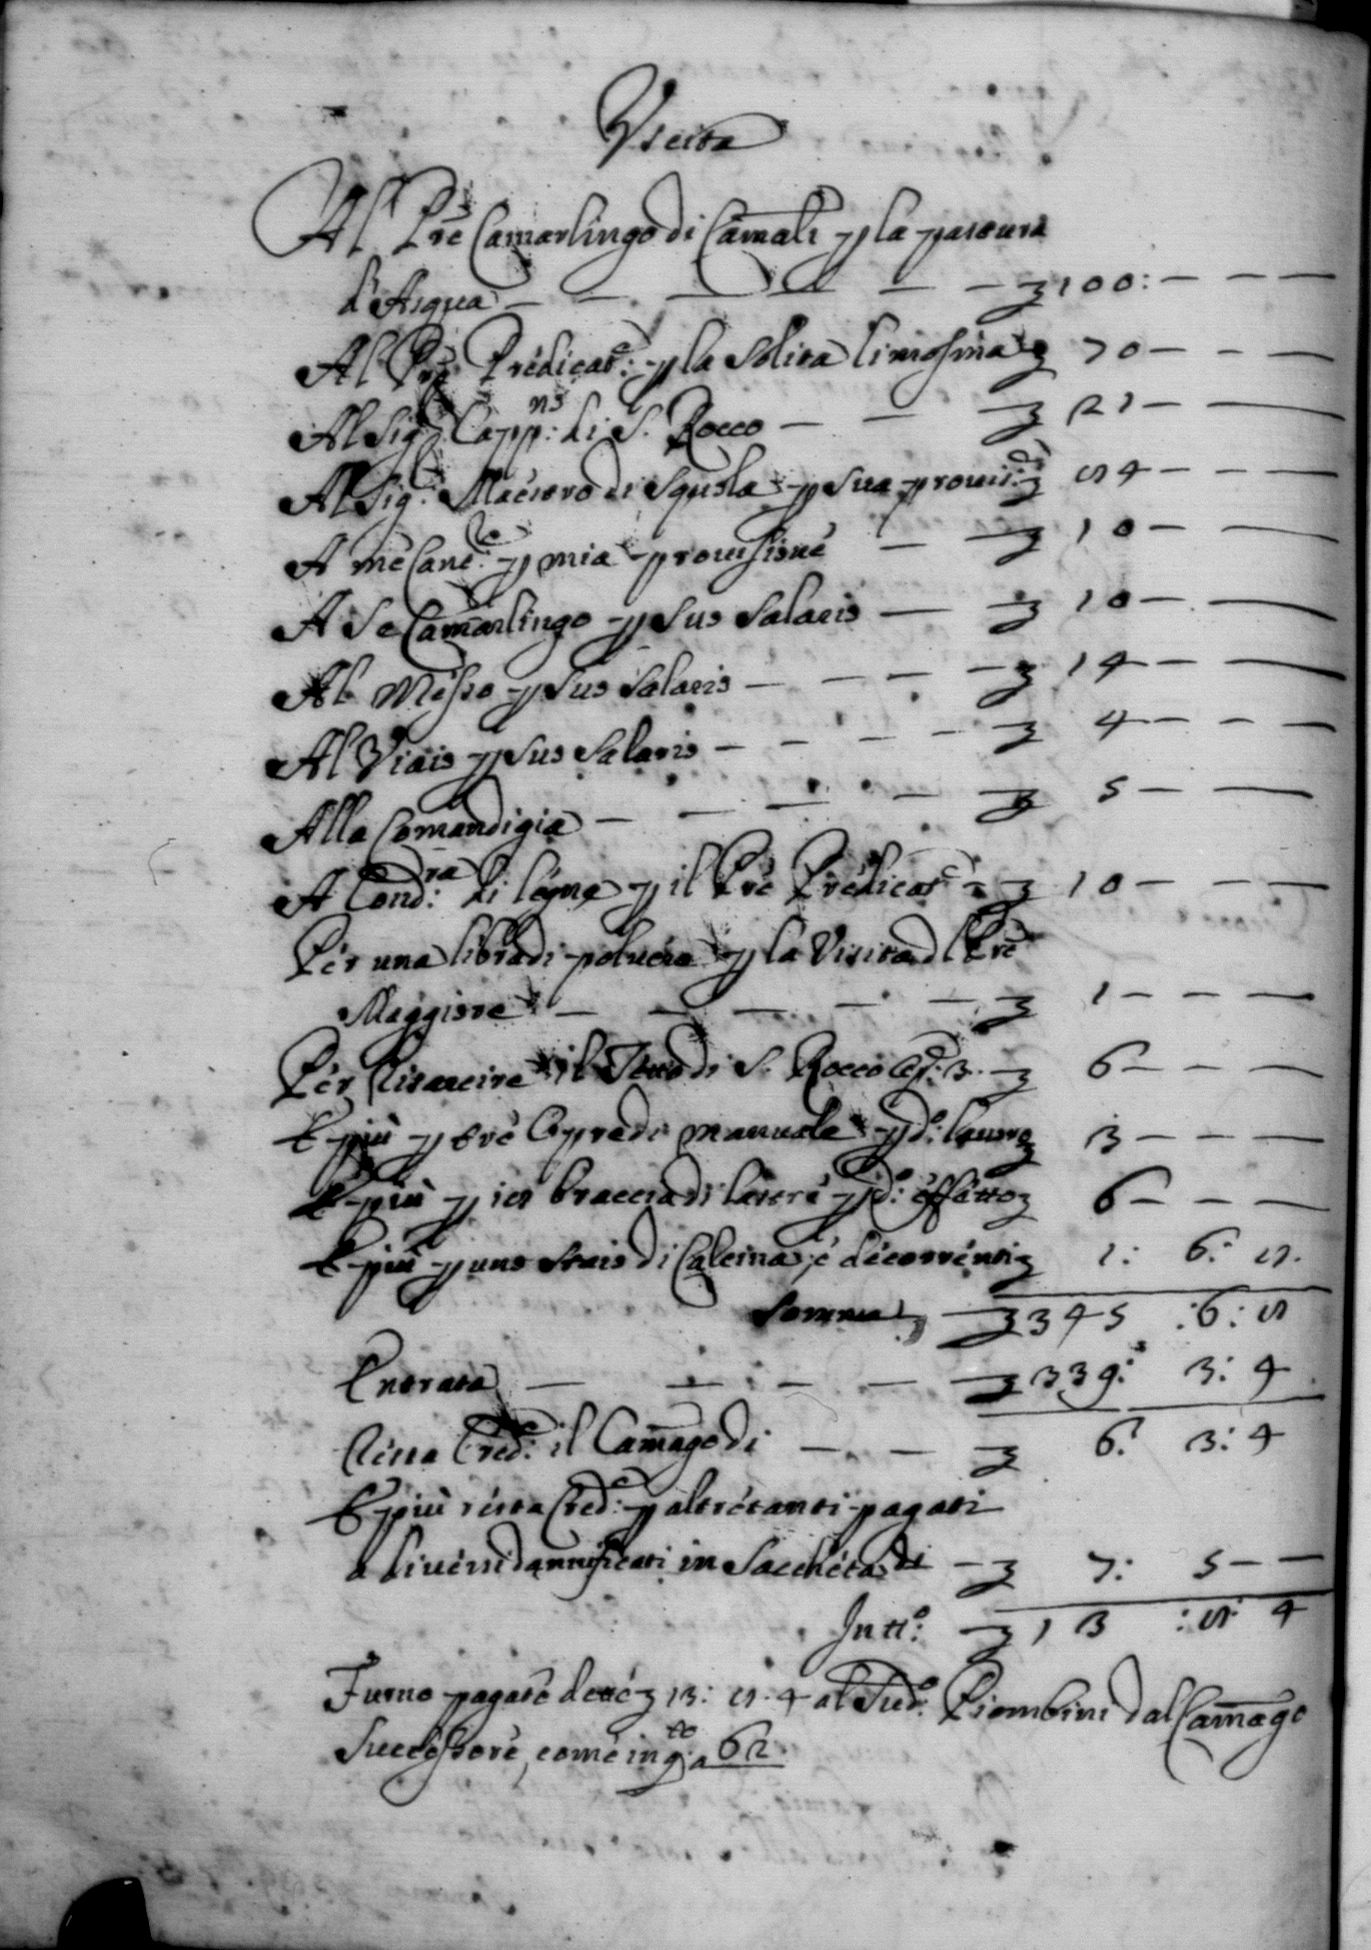 Uscita
Al Prē Camarlingo di Camāli p la pastura
d'Asqua — — — — — — ʒ 100: — — —
Al Prē Predicat.e p la solita limosina ʒ 70 — — —
Al Sig.r Capp:no di S. Rocco — — ʒ 21 — —
Al Sig.r Maestro di Squola p sua provis: ʒ 84 — — —
A me Canc:re p mia provisione — — ʒ 10 — —
A Se Camarlingo p suo salario — — ʒ 10 — —
Al Messo p suo salario — — — — ʒ 14 — —
Al Viaio p suo salario — — — — ʒ 4 — — —
Alla Comandigia — — — — — ʒ 5 — —
A Cond:ra di legne p il Prē Predicat.e ʒ 10 — — —
Per una libra di polvere p la Visita del Prē
Maggiore — — — — — ʒ 1 — — —
Per Risarcire il di S. Rocco ʒ 6 — — —
E più p tre Opre di manuale p d.o lauoro ʒ 3 — — —
E più p braccia di lastre p d.o effetto ʒ 6 — — —
E più p uno staio di Calcina, e decorrenti ʒ 1: 6: 8.
Somma ʒ 345 :6: 8
Entrata — — — — — ʒ 339: 3: 4
Resta Cred.e il Camāgo di — — ʒ 6: 3: 4
E più resta Cred.e p altretanti pagati
a diversi dannificati in Saccheta di — ʒ 7: 5 — —
In tt.o: ʒ 13 :8: 4
Furno pagate dette ʒ 13: 8. 4 al Sud.o Piombini dal Camāgo
Successore, come in q:to a 62.